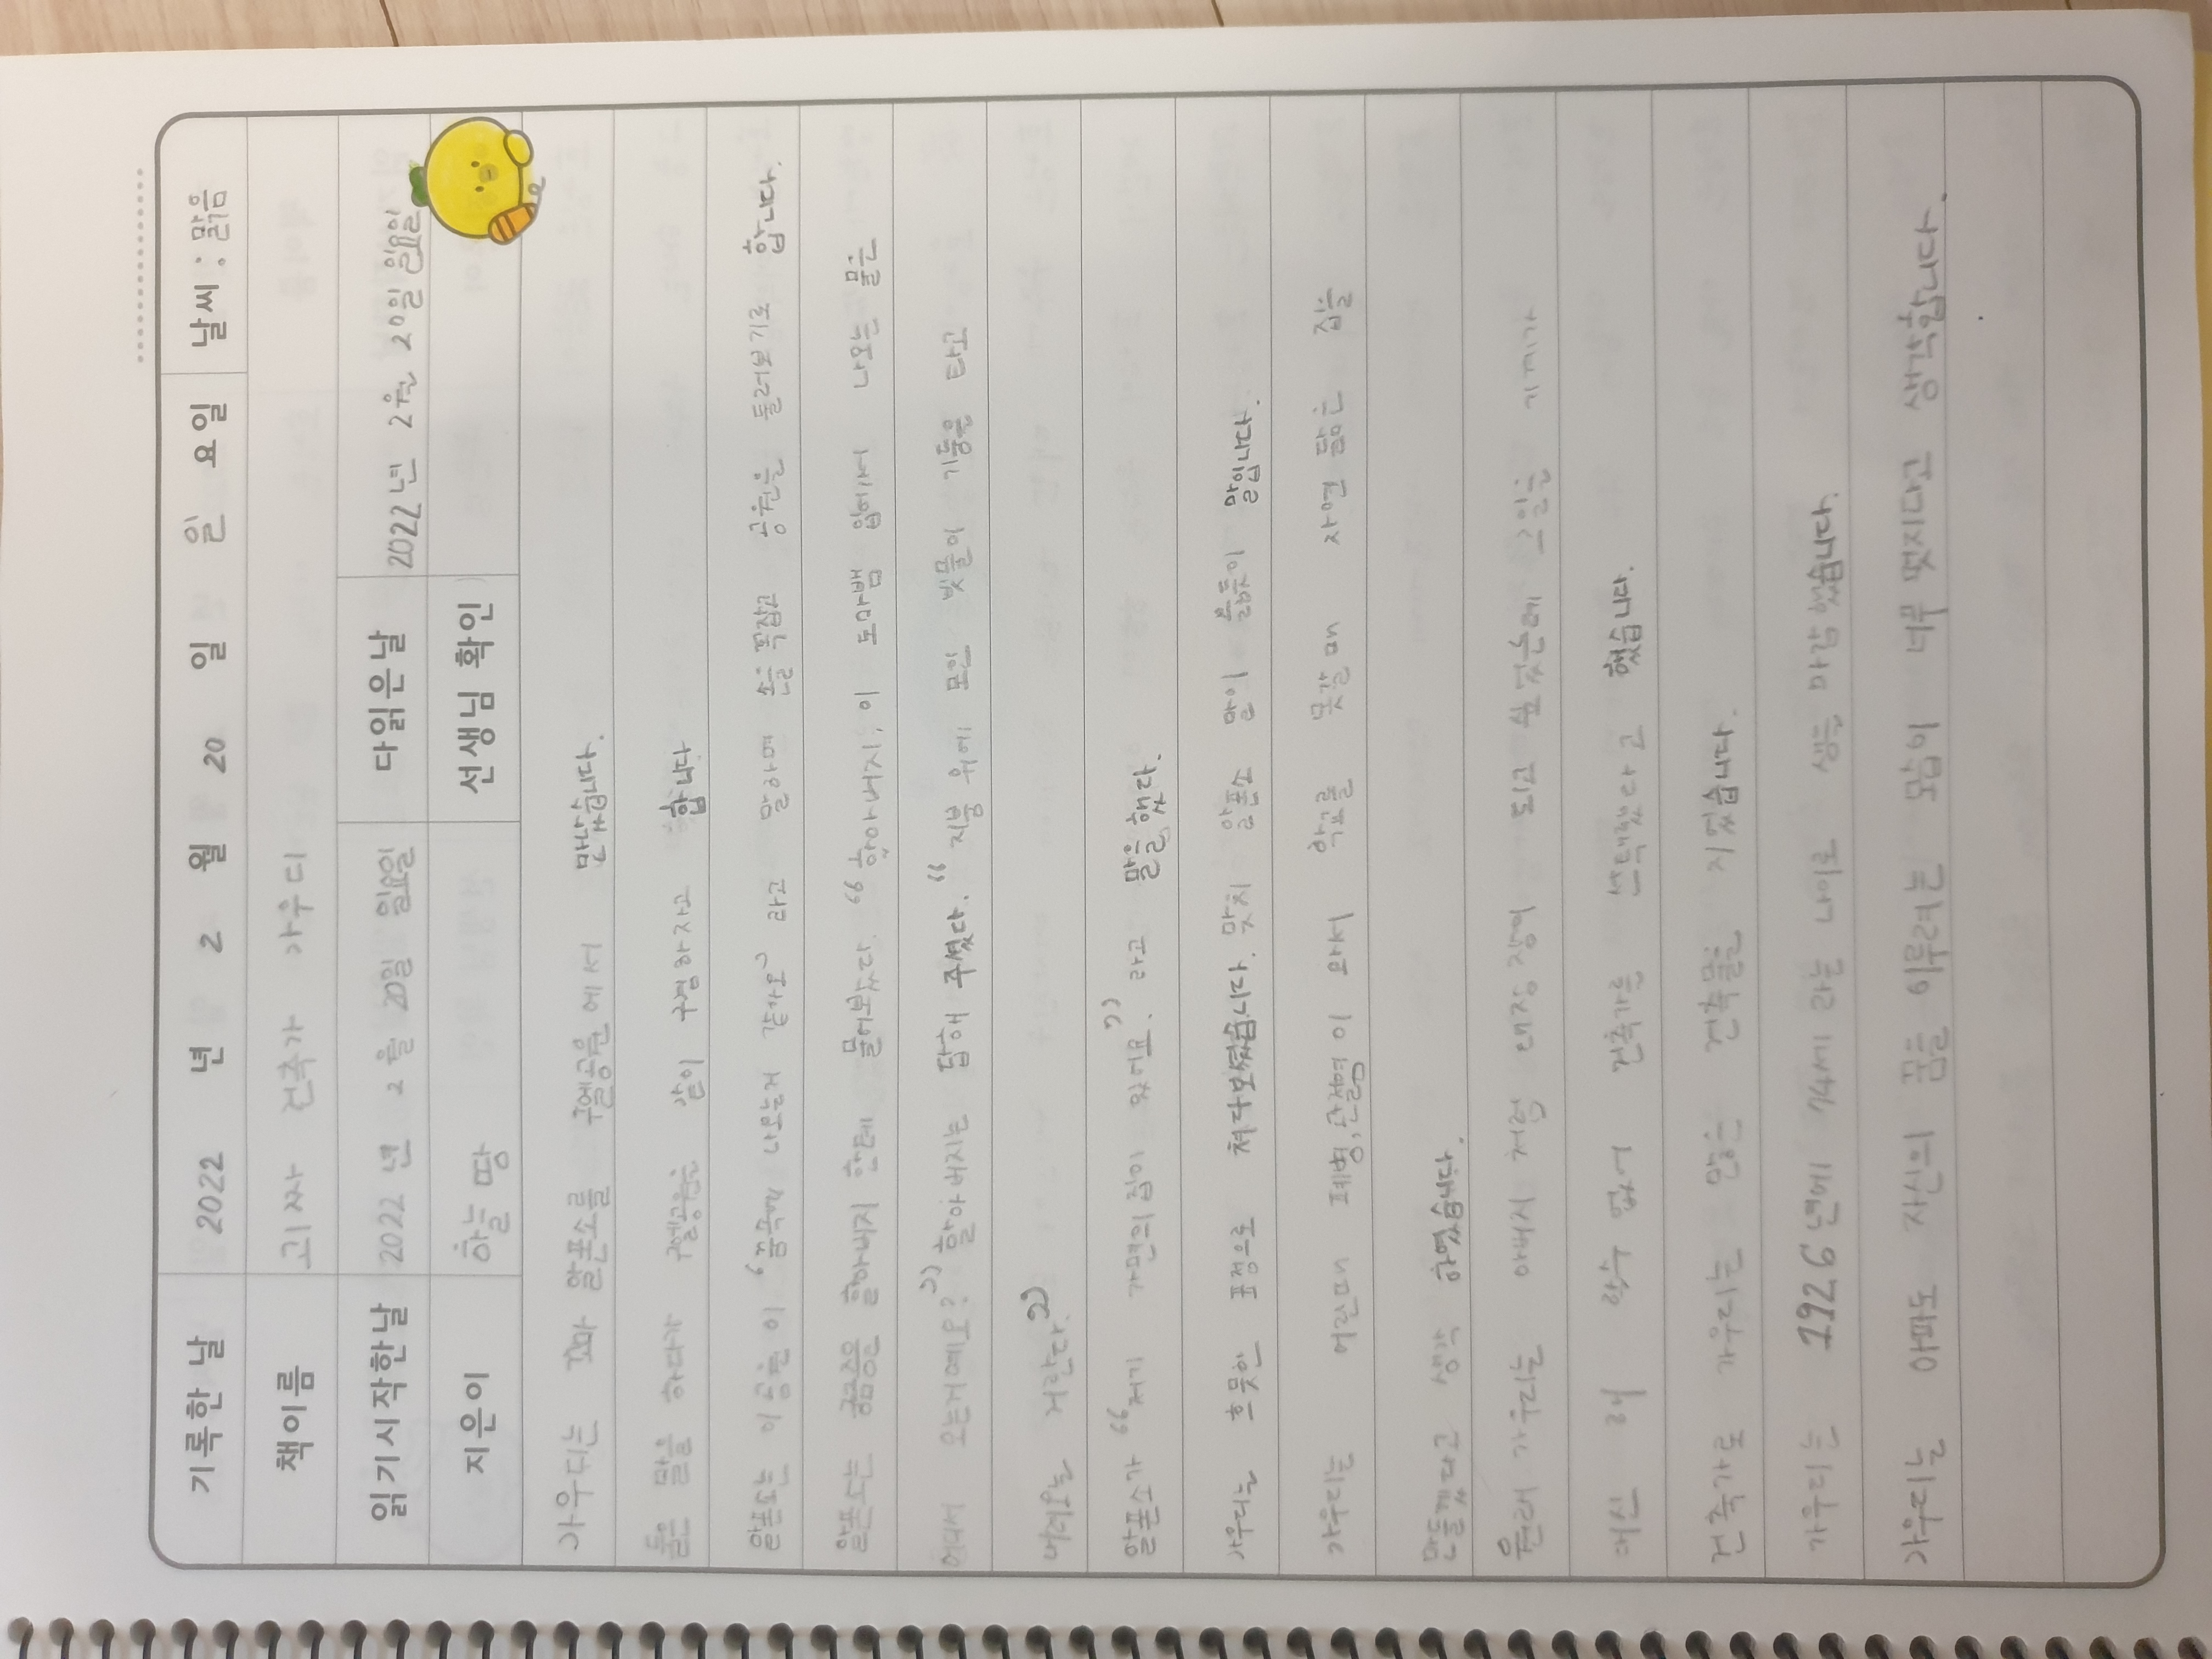 기록한 날 2022 년 2 월 20 일 일 요일 날씨 : 맑음
책이름 괴짜 건축가 가우디
읽기시작한날 2022 년 2 월 20일 일요일 다읽은날 2022년 2월 20일 일요일
지은이 하늘 땅 선생님 확인
가우디는 꼬마 알폰소를 구엘공원에서 만났습니다.
둘은 말을 하다가 구엘공원을 같이 구경하자고 합니다
알폰소는 이 공원이 '꿈속에 나오는거 같가요' 라고 말하며 손을 꼭잡고 공원을 둘러보기로 합니다.
알폰소는 궁금증은 할아버지 한테 물어보았다. "할아버지, 이 도마뱀 입에서 나오는 물은
어디서 오는거예요?" 할아버지는 답해 주셨다. "지붕 위에 모인 빗물이 기둥을 타고
내려오는 거란다."
알폰소가 "저기 가면의집이 있어요." 라고 말을 했다.
가우디는 흐믓한 표정으로 쳐다보셨습니다. 맞치 알폰소 말이 옳듯이 말입니다.
가우디는 어린때 폐병, 관절염이 와서 학교를 못갈때 자연 닮은 집을
만들겠다고 생각 하였습니다.
원래 가우디는 아버지 처럼 대장장이 되고 싶었는데 그일을 기계가
대신 해 할수 없어 건축가를 선택했다고 했습니다.
건축가로 가우디는 많은 건축물을 지었습니다.
가우디는 1926년에 74세 라는 나이로 생을 마감했습니다.
가우디는 아파도 자신의 꿈을 이루려는 모습이 너무 멋지다고 생각합니다.